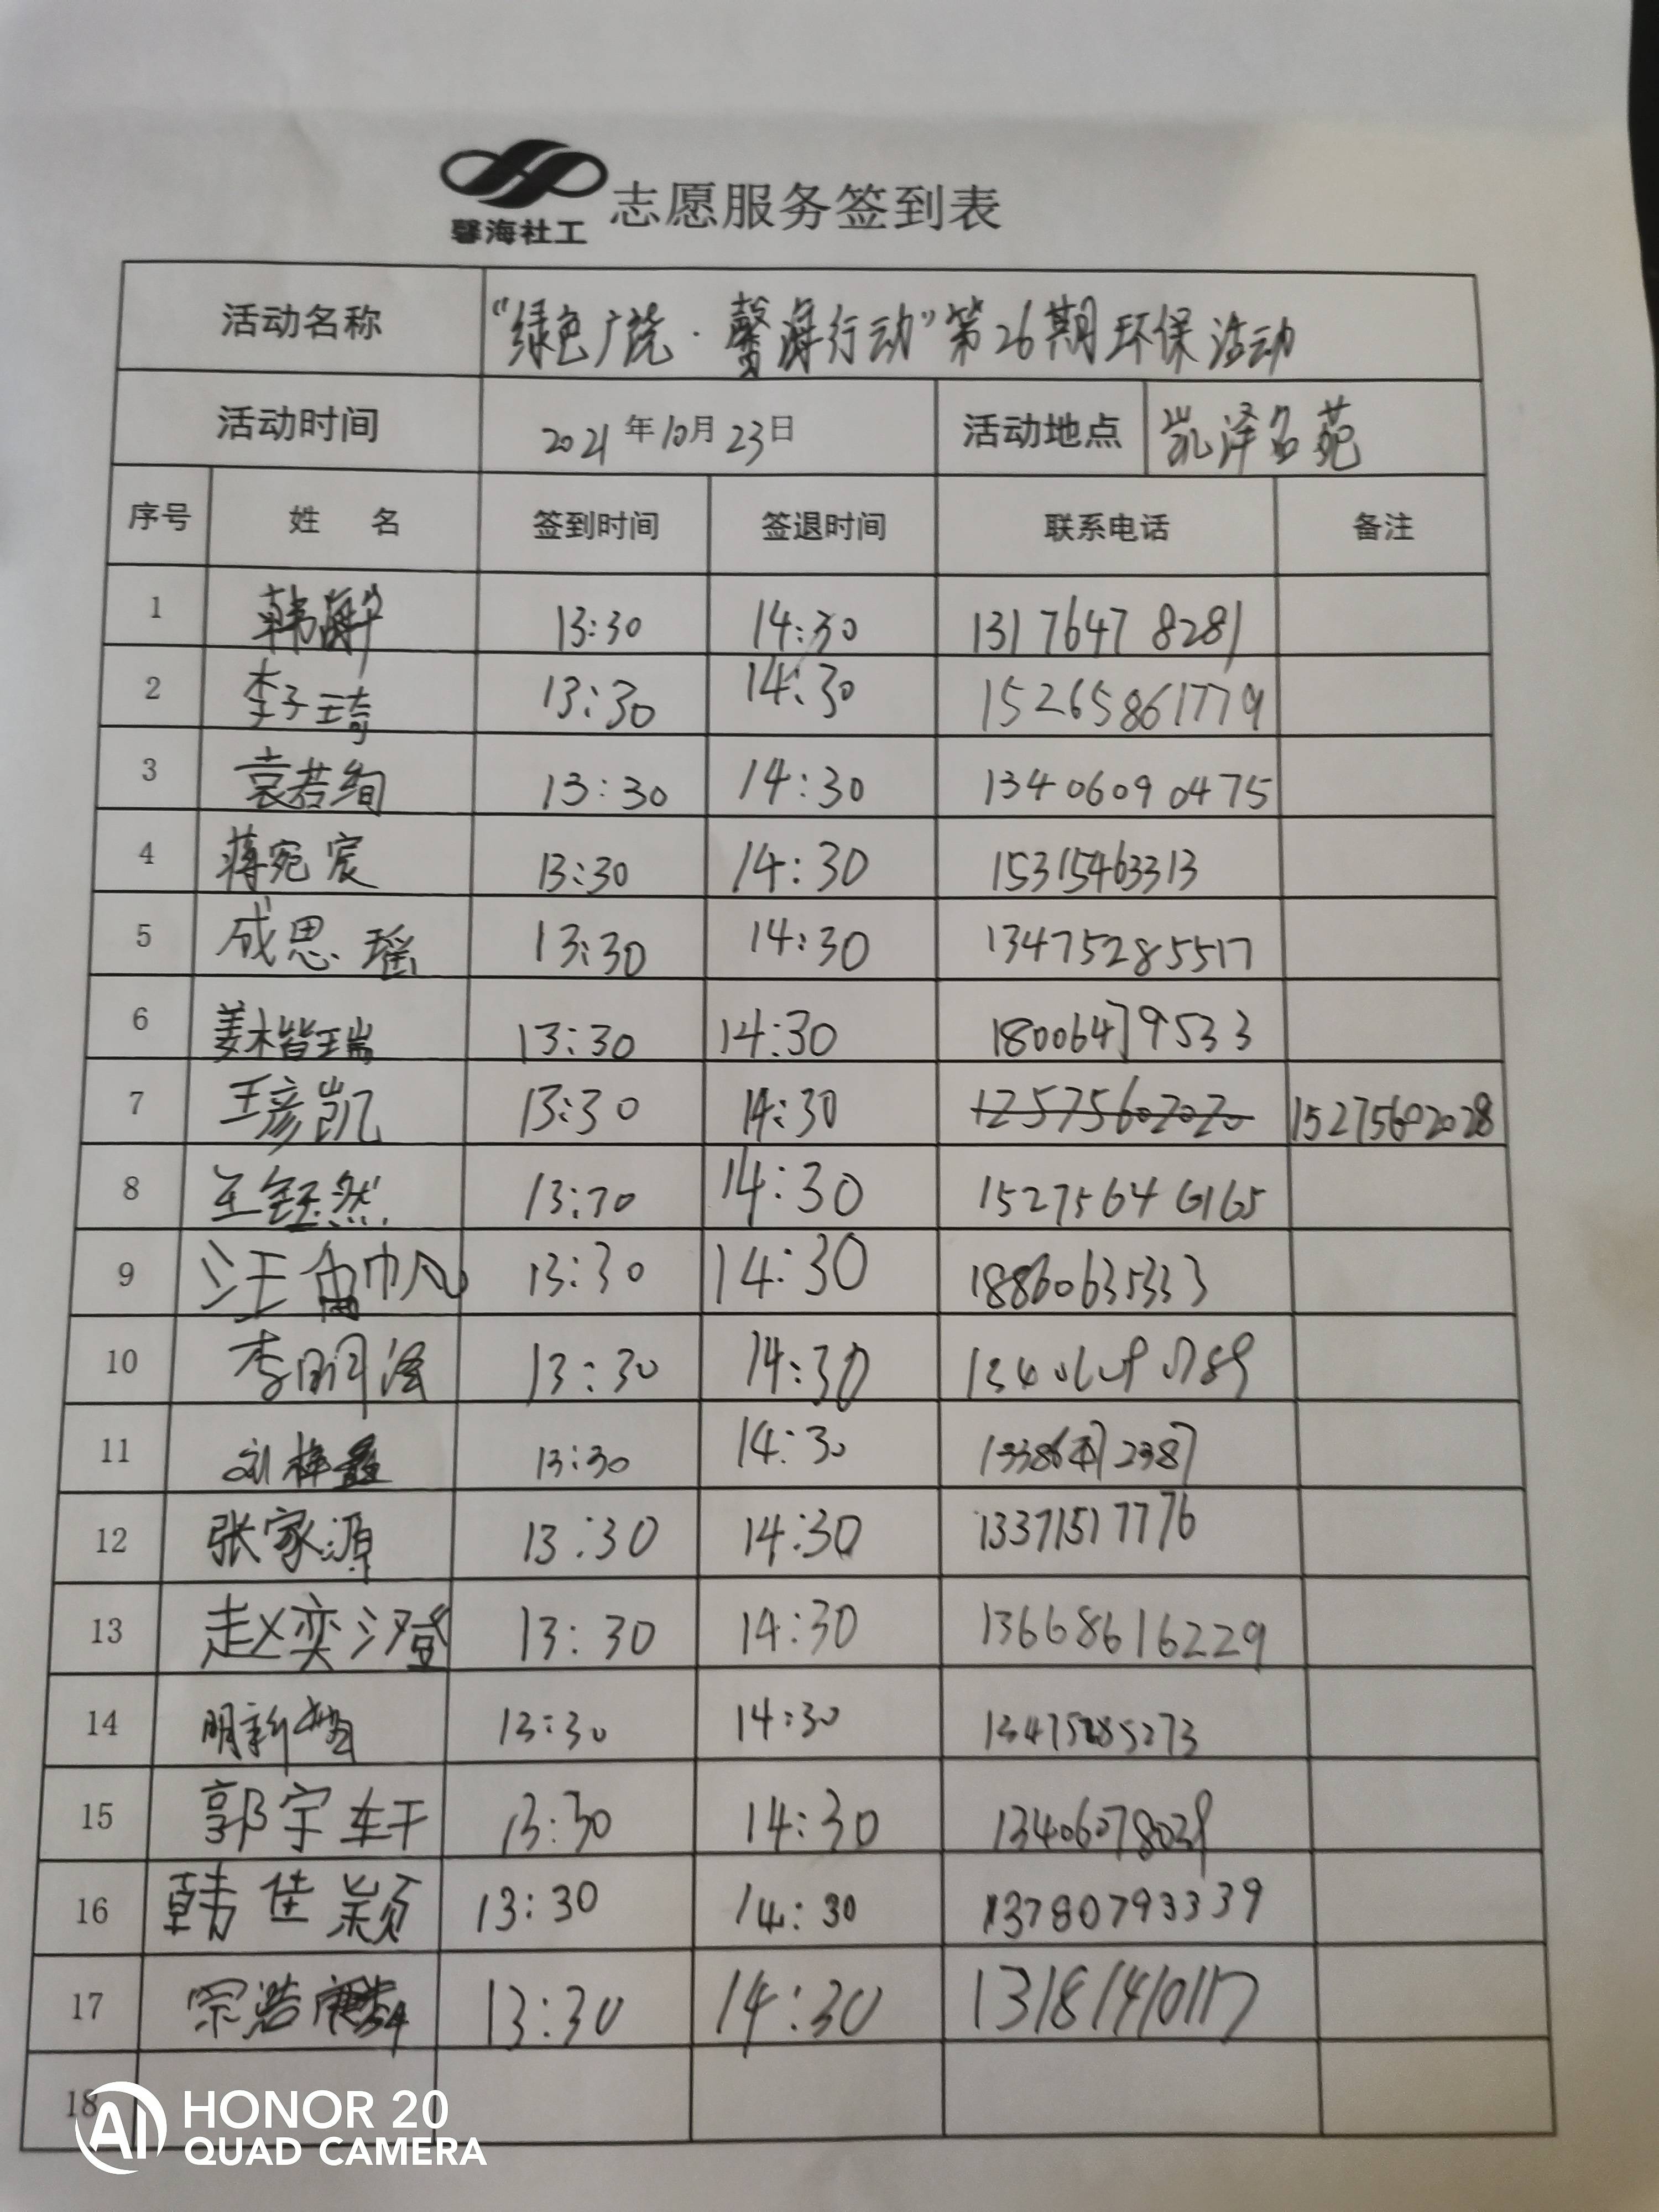 馨海社工 志愿服务签到表
活动名称 “绿色广饶·馨海行动”第26期环保活动
活动时间 2021年10月23日 活动地点 凯泽名苑
序号 姓 名 签到时间 签退时间 联系电话 备注
1 韩 13:30 14:30 13176478281
2 李子琦 13:30 14:30 15265861779
3 袁若绚 13:30 14:30 13406090475
4 蒋宛宸 13:30 14:30 15315463313
5 成思瑶 13:30 14:30 13475285517
6 姜楷瑞 13:30 14:30 18006479533
7 王彦凯 13:30 14:30 15275602028
8 王钰然 13:30 14:30 15275646165
9 汪 13:30 14:30 18860635333
10 李明泽 13:30 14:30
11 刘梓鑫 13:30 14:30
12 张家源 13:30 14:30 13371517776
13 赵奕澄 13:30 14:30 13668616229
14 明新 13:30 14:30 13475285273
15 郭宇轩 13:30 14:30 13406078039
16 韩佳颖 13:30 14:30 13780793339
17 宗浩麟 13:30 14:30 13181410117
18
AI HONOR 20
QUAD CAMERA